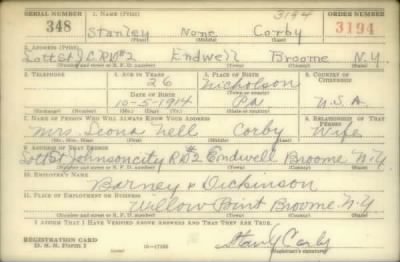 SERIAL NUMBER 1. NAME (Print) 3194 ORDER NUMBER
348 Stanley None Corby 3194
(First) (Middle) (Last)
2. ADDRESS (Print)
J.C. RD#2 Endwell Broome N.Y.
(Number and street or R. F. D. number) (Town) (County) (State)
3. TELEPHONE 4. AGE IN YEARS 5. PLACE OF BIRTH 6. COUNTRY OF CITIZENSHIP
26 Nicholson
DATE OF BIRTH (Town or county)
10-5-1914 PA U.S.A.
(Exchange) (Number) (Mo.) (Day) (Yr.) (State or country)
7. NAME OF PERSON WHO WILL ALWAYS KNOW YOUR ADDRESS 8. RELATIONSHIP OF THAT PERSON
Mrs. Leona Nell Corby Wife
(Mr., Mrs., Miss) (First) (Middle) (Last)
9. ADDRESS OF THAT PERSON
Johnson City RD#2 Endwell Broome N.Y.
(Number and street or R. F. D. number) (Town) (County) (State)
10. EMPLOYER'S NAME
Barney & Dickinson
11. PLACE OF EMPLOYMENT OR BUSINESS
Willow Point Broome N.Y.
(Number and street or R. F. D. number) (Town) (County) (State)
I AFFIRM THAT I HAVE VERIFIED ABOVE ANSWERS AND THAT THEY ARE TRUE.
REGISTRATION CARD
D. S. S. Form 1 16-17105 Stanly Corby
(Registrant's signature)